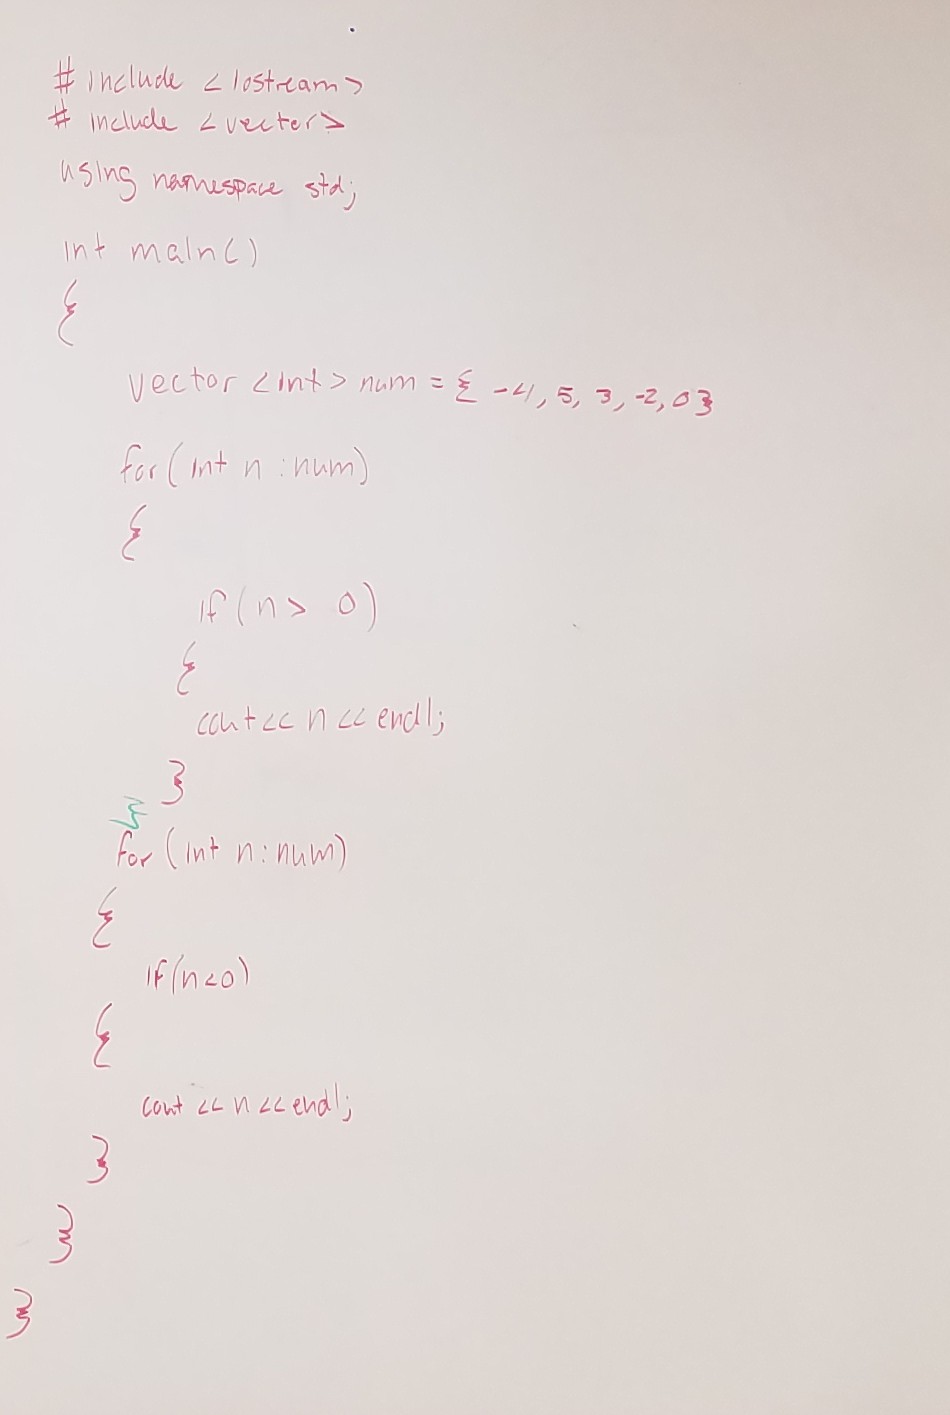 # include <iostream>
# include <vector>
using namespace std;
int main()
{
vector <int> num = { -4, 5, 3, -2, 0}
for (int n : num)
{
if (n > 0)
{
cout << n << endl;
}
}
for (int n : num)
{
if (n < 0)
{
cout << n << endl;
}
}
}